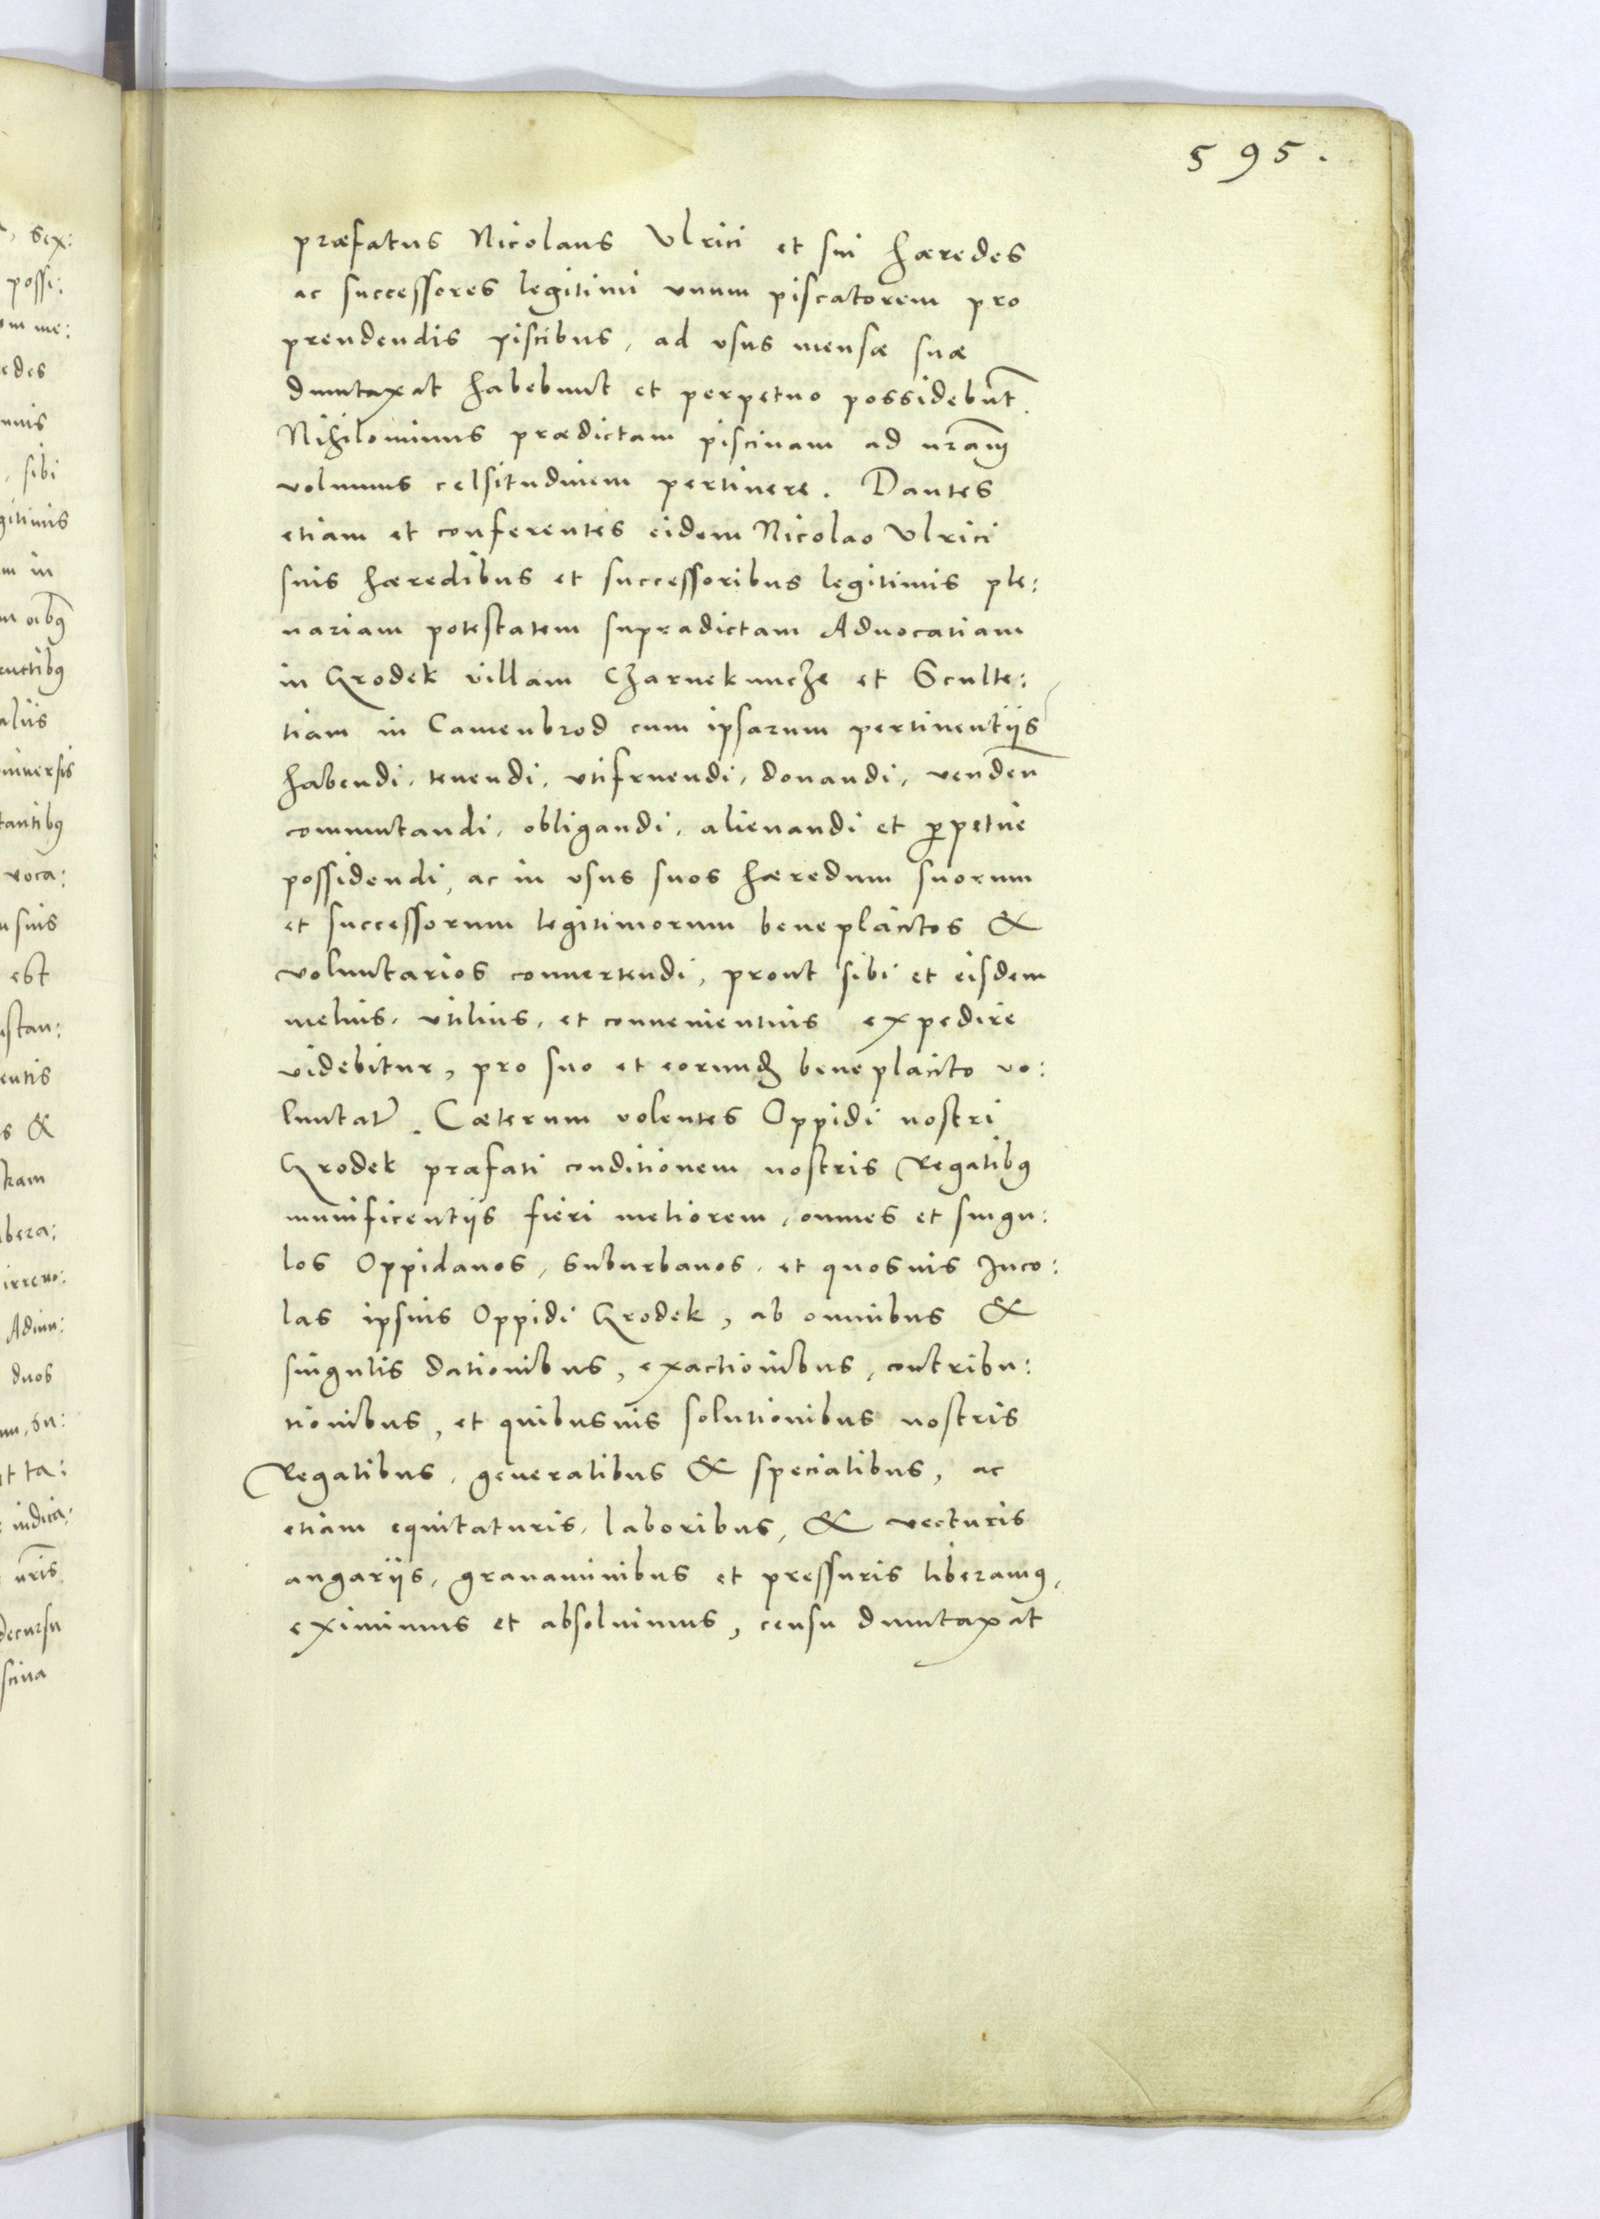 595.
præfatus Nicolaus Vlrici et sui hæredes
ac successores legitimi vnum piscatorem pro
prendendis piscibus, ad vsus mensæ suæ
duntaxat habebunt et perpetuo possidebunt̃.
Nihilominus prædictam piscinam ad nr̃am
volumus celsitudinem pertinere. Dantes
etiam et conferentes eidem Nicolao Vlrici
suis hæredibus et successoribus legitimis ple:
nariam potestatem supradictam Aduocatiam
in Grodek villam Czarnekuncze et Sculte:
tiam in Camenbrod cum ipsarum pertinentijs
habendi, tenendi, vtifruendi, donandi, venden̄
commutandi, obligandi, alienandi et ꝑpetue
possidendi, ac in vsus suos hæredum suorum
et successorum legitimorum beneplacitos &
voluntarios conuertendi, prout sibi et eisdem
melius, vtilius, et conuenientius expedire
videbitur, pro suo et eorundẽ beneplacito vo:
luntat̃. Cæterum volentes Oppidi nostri
Grodek præfati conditionem nostris Regalibꝰ
munificentijs fieri meliorem, omnes et singu:
los Oppidanos, Suburbanos, et quosuis Inco:
las ipsius Oppidi Grodek, ab omnibus &
singulis dationibus, exactionibus, contribu:
tionibus, et quibusuis solutionibus nostris
Regalibus, generalibus & specialibus, ac
etiam equitaturis, laboribus, & vecturis
angarijs, grauaminibus et pressuris liberamꝰ,
eximimus et absoluimus, censu duntaxat